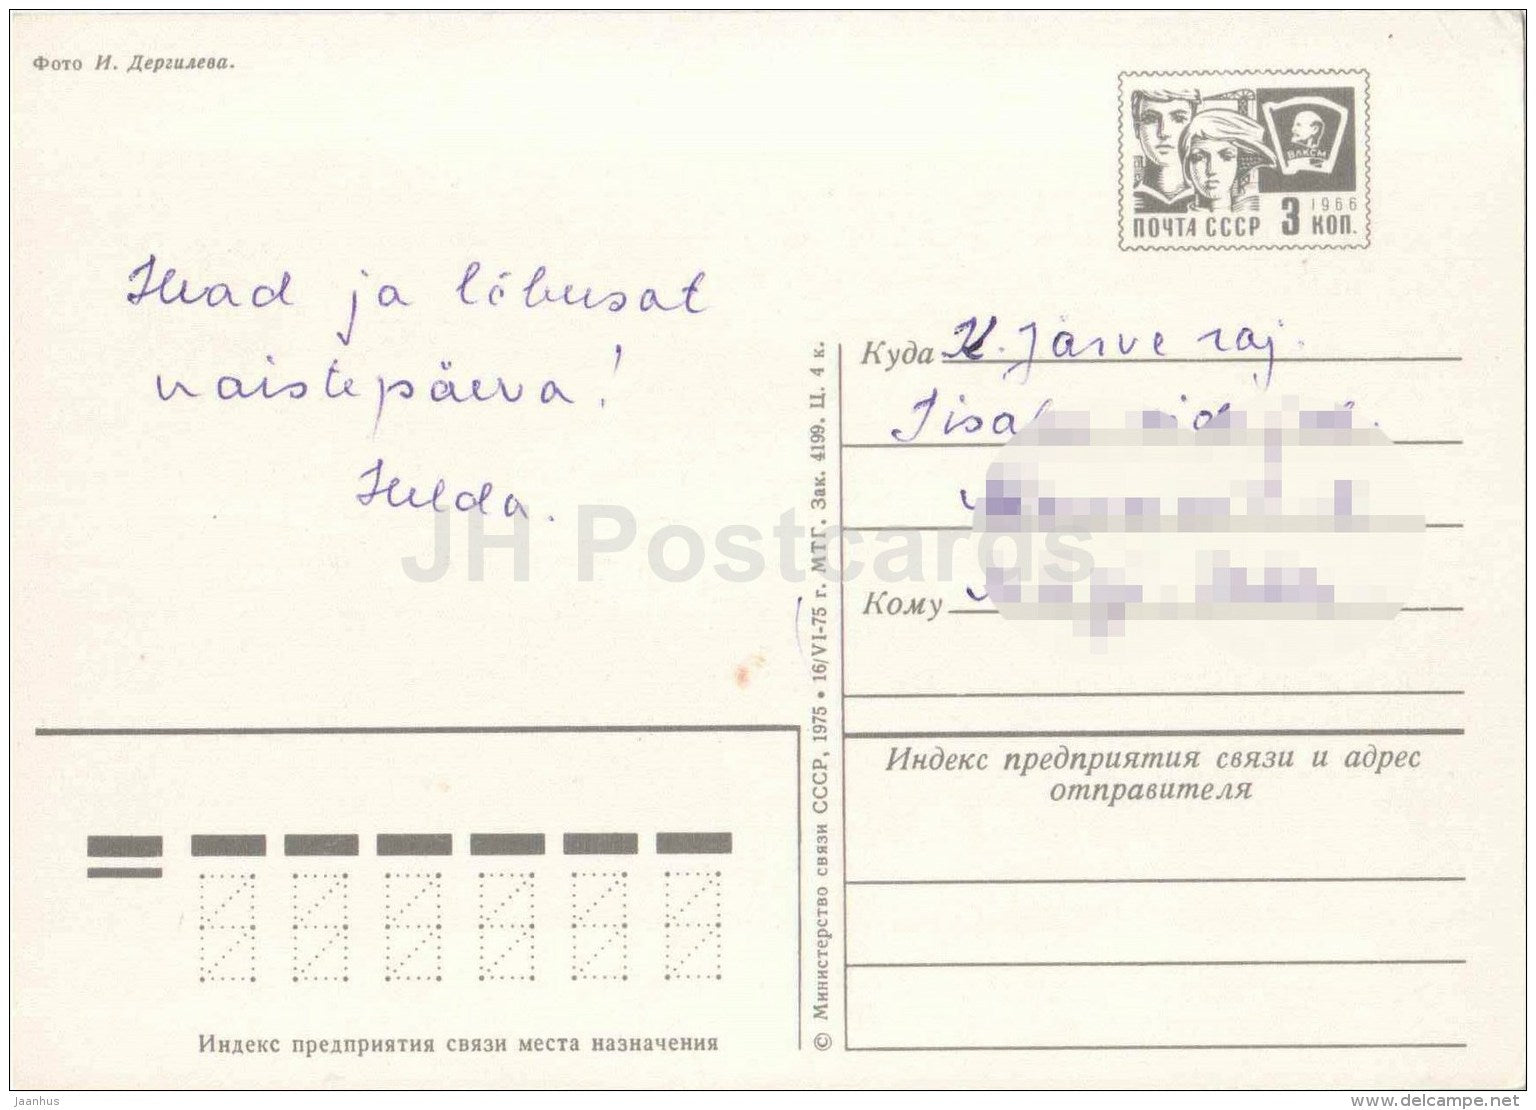 Фото И. Дергилева.
ПОЧТА СССР 3 КОП.
1966
ВЛКСМ
Head ja lõbusat
naistepäeva!
Helda.
Куда K. Järve raj.
Кому
Индекс предприятия связи и адрес
отправителя
© Министерство связи СССР, 1975 • 16/VI-75 г. МТГ. Зак. 4199. Ц. 4 к.
Индекс предприятия связи места назначения
JH Postcards
Jaanhus
www.delcampe.net